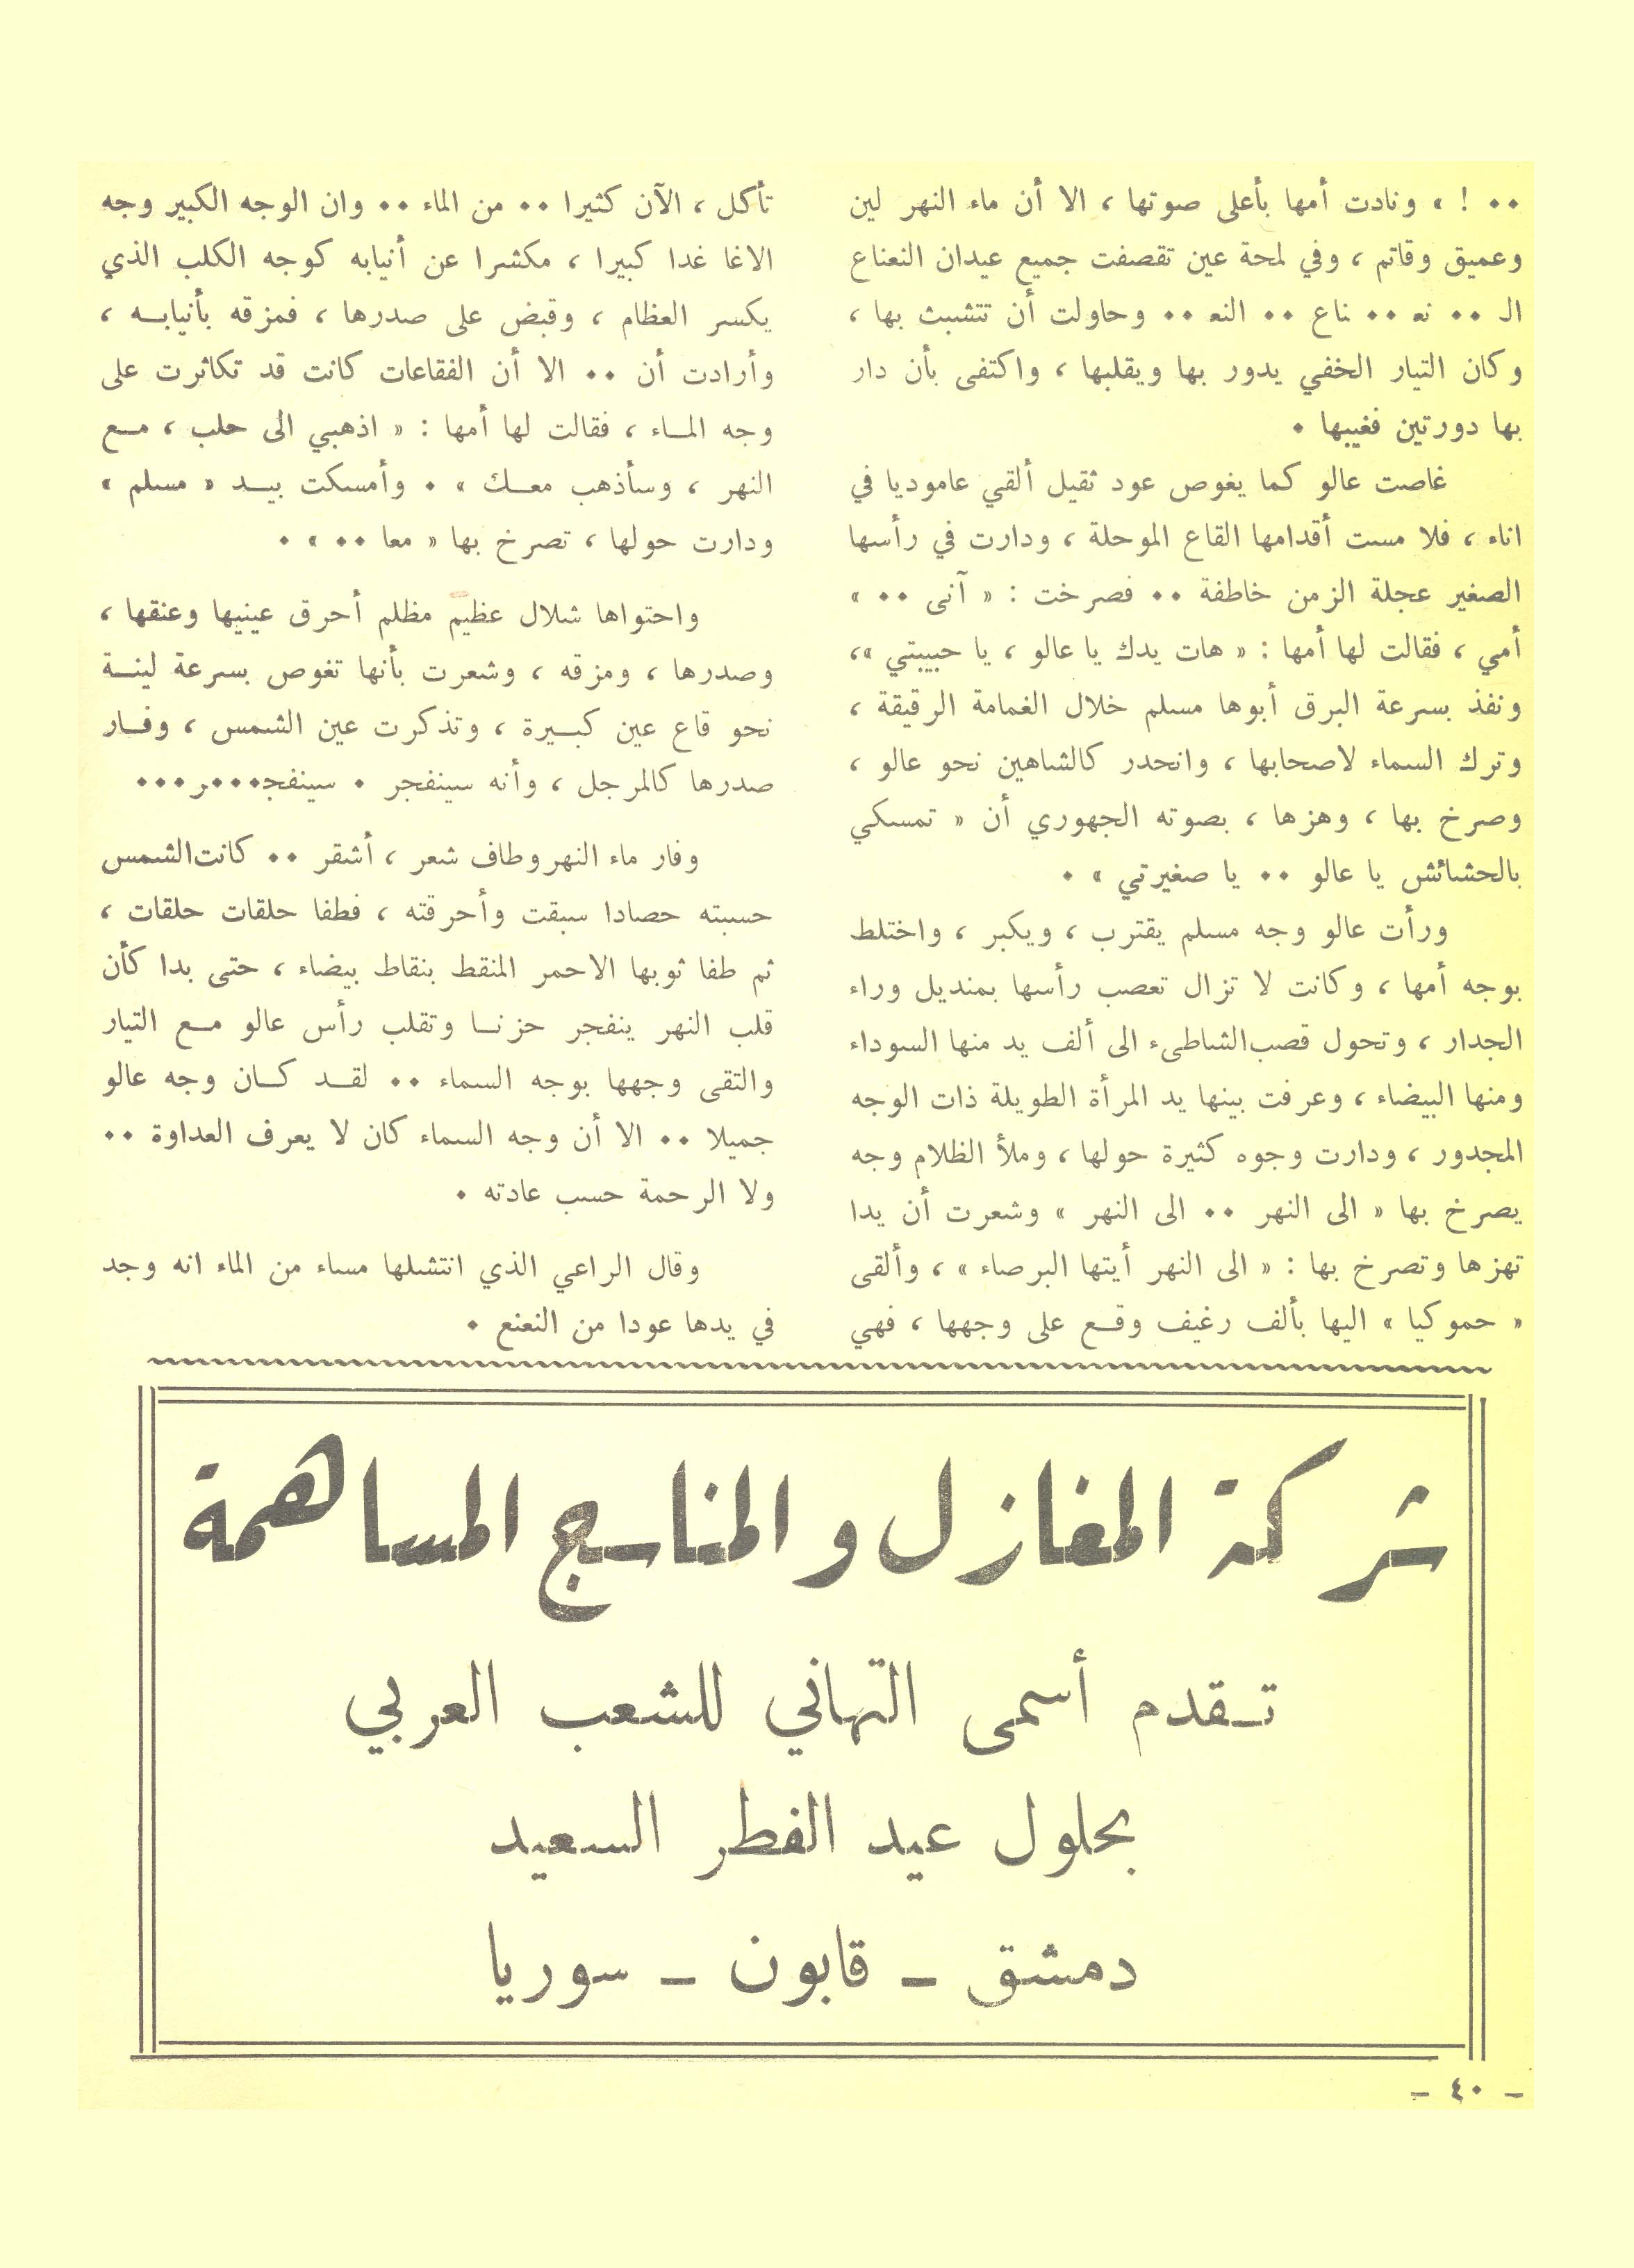 •• ! » ونادت أمها بأعلى صوتها ، الا أن ماء النهر لين
وعميق وقاتم ، وفي لمحة عين تقصفت جميع عيدان النعناع
الـ •• نعـ •• ناع •• النعـ •• وحاولت أن تتشبث بها ،
وكان التيار الخفي يدور بها ويقلبها ، واكتفى بأن دار
بها دورتين فغيبها •
غاصت عالو كما يغوص عود ثقيل ألقي عاموديا في
اناء ، فلا مست أقدامها القاع الموحلة ، ودارت في رأسها
الصغير عجلة الزمن خاطفة •• فصرخت : « آنى •• »
أمي ، فقالت لها أمها : « هات يدك يا عالو ، يا حبيبتي »،
ونفذ بسرعة البرق أبوها مسلم خلال الغمامة الرقيقة ،
وترك السماء لاصحابها ، وانحدر كالشاهين نحو عالو ،
وصرخ بها ، وهزها ، بصوته الجهوري أن « تمسكي
بالحشائش يا عالو •• يا صغيرتي » •
ورأت عالو وجه مسلم يقترب ، ويكبر ، واختلط
بوجه أمها ، وكانت لا تزال تعصب رأسها بمنديل وراء
الجدار ، وتحول قصب الشاطىء الى ألف يد منها السوداء
ومنها البيضاء ، وعرفت بينها يد المرأة الطويلة ذات الوجه
المجدور ، ودارت وجوه كثيرة حولها ، وملأ الظلام وجه
يصرخ بها « الى النهر •• الى النهر » وشعرت أن يدا
تهزها وتصرخ بها : « الى النهر أيتها البرصاء » ، وألقى
« حموكيا » اليها بألف رغيف وقع على وجهها ، فهي
تأكل ، الآن كثيرا •• من الماء •• وان الوجه الكبير وجه
الاغا غدا كبيرا ، مكشرا عن أنيابه كوجه الكلب الذي
يكسر العظام ، وقبض على صدرها ، فمزقه بأنيابه ،
وأرادت أن •• الا أن الفقاعات كانت قد تكاثرت على
وجه الماء ، فقالت لها أمها : « اذهبي الى حلب ، مع
النهر ، وسأذهب معك » • وأمسكت بيد « مسلم »
ودارت حولها ، تصرخ بها « معا •• » •
واحتواها شلال عظيم مظلم أحرق عينيها وعنقها ،
وصدرها ، ومزقه ، وشعرت بأنها تغوص بسرعة لينة
نحو قاع عين كبيرة ، وتذكرت عين الشمس ، وفار
صدرها كالمرجل ، وأنه سينفجر • سينفجـ•••ر•••
وفار ماء النهر وطاف شعر ، أشقر •• كانت الشمس
حسبته حصادا سبقت وأحرقته ، فطفا حلقات حلقات ،
ثم طفا ثوبها الاحمر المنقط بنقاط بيضاء ، حتى بدا كأن
قلب النهر ينفجر حزنا وتقلب رأس عالو مع التيار
والتقى وجهها بوجه السماء •• لقد كان وجه عالو
جميلا •• الا أن وجه السماء كان لا يعرف العداوة ••
ولا الرحمة حسب عادته •
وقال الراعي الذي انتشلها مساء من الماء انه وجد
في يدها عودا من النعنع •
شركة المغازل والمناسج المساهمة
تقدم أسمى التهاني للشعب العربي
بحلول عيد الفطر السعيد
دمشق – قابون – سوريا
– ٤٠ –